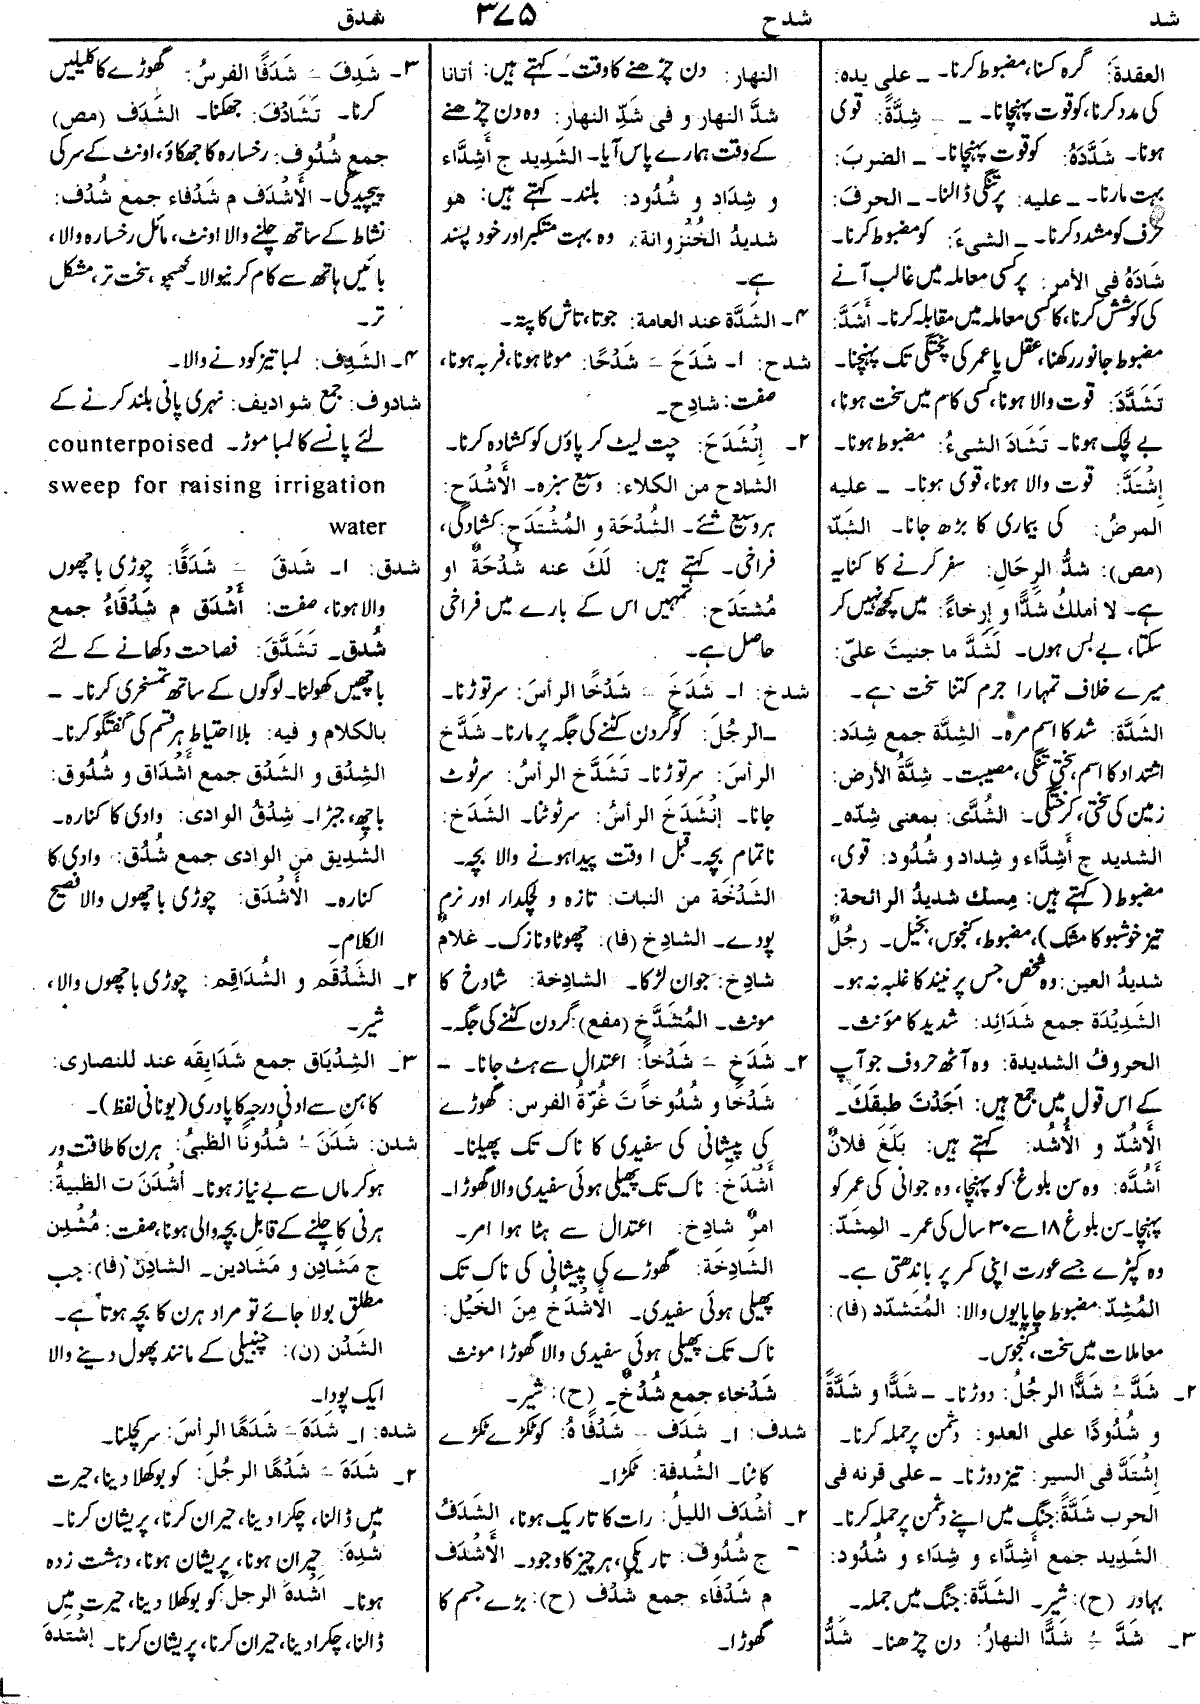 شد
شدح
۳۷۵
شدق
العقدةَ: گرہ کسنا، مضبوط کرنا۔ ــ علی یدہ:
کی مدد کرنا، کو قوت پہنچانا۔ ــ ــ شِدَّةً: قوی
ہونا۔ شَدَّدَہُ: کو قوت پہنچانا۔ ــ الضربَ:
بہت مارنا۔ ــ علیہ: پر تنگی ڈالنا۔ ــ الحرفَ:
حرف کو مشدد کرنا۔ ــ الشیءَ: کو مضبوط کرنا۔
شَادَہُ فی الأمر: پر کسی معاملہ میں غالب آنے
کی کوشش کرنا، کا کسی معاملہ میں مقابلہ کرنا۔ أَشَدَّ:
مضبوط جانور رکھنا، عقل یا عمر کی پختگی تک پہنچنا۔
تَشَدَّدَ: قوت والا ہونا، کسی کام میں سخت ہونا،
بے لچک ہونا۔ تَشَادَ الشیءُ: مضبوط ہونا۔
اِشْتَدَّ: قوت والا ہونا، قوی ہونا۔ ــ علیہ
المرضُ: کی بیماری کا بڑھ جانا۔ الشَدّ
(مص): شدُّ الرِحَالِ: سفر کرنے کا کنایہ
ہے۔ لا أملكُ شَدًّا و إرخاءً: میں کچھ نہیں کر
سکتا، بے بس ہوں۔ لَشَدَّ ما جنیتَ علیَّ:
میرے خلاف تمہارا جرم کتنا سخت ہے۔
الشَدَّة: شد کا اسم مرہ۔ الشِدَّة جمع شِدَد:
اشتداد کا اسم، سختی تنگی، مصیبت۔ شِدَّةُ الأرض:
زمین کی سختی، کرختگی۔ الشُدَّی: بمعنی شِدّہ۔
الشدید ج أَشِدَّاء و شِداد و شُدُود: قوی،
مضبوط (کہتے ہیں: مِسك شدیدُ الرائحة:
تیز خوشبو کا مشک)، مضبوط، کنجوس، بخیل۔ رجُلٌ
شدیدُ العین: وہ شخص جس پر نیند کا غلبہ نہ ہو۔
الشَدِیْدَة جمع شَدَائِد: شدید کا مؤنث۔
الحروفُ الشدیدة: وہ آٹھ حروف جو آپ
کے اس قول میں جمع ہیں: اَجَدْتَ طبقَكَ۔
الأَشُدّ و الأُشُد: کہتے ہیں: بَلَغَ فلانٌ
أَشُدَّہ: وہ سن بلوغ کو پہنچا، وہ جوانی کی عمر کو
پہنچا۔ سن بلوغ ۱۸ سے ۳۰ سال کی عمر۔ المِشَدّ:
وہ کپڑے جسے عورت اپنی کمر پر باندھتی ہے۔
المُشِدّ: مضبوط چاپایوں والا: المُتَشَدِّد (فا):
معاملات میں سخت، کنجوس۔
۲ــ شَدَّ ـُ شَدًّا الرجُلُ: دوڑنا۔ ــ شَدًّا و شَدَّةً
و شُدُودًا علی العدو: دشمن پر حملہ کرنا۔
اِشْتَدَّ فی السیر: تیز دوڑنا۔ ــ علی قرنہ فی
الحرب شَدَّةً: جنگ میں اپنے دشمن پر حملہ کرنا۔
الشَدِید جمع أَشِدَّاء و شِدَاء و شُدُود:
بہادر (ح): شیر۔ الشَدَّة: جنگ میں حملہ۔
۳ــ شَدَّ ـُ شَدًّا النهارُ: دن چڑھنا۔ شَدُّ
النهار: دن چڑھنے کا وقت۔ کہتے ہیں: أتانا
شدَّ النهار و فی شَدِّ النهار: وہ دن چڑھنے
کے وقت ہمارے پاس آیا۔ الشدید ج أَشِدَّاء
و شِدَاد و شُدُود: بلند۔ کہتے ہیں: هو
شدیدُ الخُنْزُوانة: وہ بہت متکبر اور خود پسند
ہے۔
۴ــ الشَدَّة عند العامة: جوتا، تاش کا پتہ۔
شدح: ۱ــ شَدَحَ ـَ شَدْحًا: موٹا ہونا، فربہ ہونا،
صفت: شادِح۔
۲ــ اِنْشَدَحَ: چت لیٹ کر پاؤں کو کشادہ کرنا۔
الشادح من الکلاء: وسیع سبزہ۔ الأَشْدَح:
ہر وسیع شئے۔ الشُدْحَة و المُشْتَدَح: کشادگی،
فراخی۔ کہتے ہیں: لَكَ عنه شُدْحَةٌ او
مُشتَدَح: تمہیں اس کے بارے میں فراخی
حاصل ہے۔
شدخ: ۱ــ شَدَخَ ـَ شَدْخًا الرأسَ: سر توڑنا۔
ــ الرجُلَ: کو گردن کٹنے کی جگہ پر مارنا۔ شَدَّخ
الرأسَ: سر توڑنا۔ تَشَدَّخ الرأسُ: سر ٹوٹ
جانا۔ اِنْشَدَخَ الرأسُ: سر ٹوٹنا۔ الشَدَخ:
ناتمام بچہ۔ قبل ا وقت پیدا ہونے والا بچہ۔
الشَدْخَة من النبات: تازہ و لچکدار اور نرم
پودے۔ الشادِخ (فا): چھوٹا و نازک۔ غلامٌ
شادِخ: جوان لڑکا۔ الشادِخة: شادخ کا
مونث۔ المُشَدَّخ (مفع): گردن کٹنے کی جگہ۔
۲ــ شَدَخ ـَ شَدْخا: اعتدال سے ہٹ جانا۔ ــ
شَدْخًا و شُدُوخاً تَ غُرّةُ الفرس: گھوڑے
کی پیشانی کی سفیدی کا ناک تک پھیلنا۔
أَشْدَخ: ناک تک پھیلی ہوئی سفیدی والا گھوڑا۔
امرٌ شادِخ: اعتدال سے ہٹا ہوا امر۔
الشَادِخَة: گھوڑے کی پیشانی کی ناک تک
پھیلی ہوئی سفیدی۔ الأَشْدَخُ مِنَ الخَیْل:
ناک تک پھیلی ہوئی سفیدی والا گھوڑا مونث
شَدْخاء جمع شُدْخٌ۔ (ح): شیر۔
شدف: ۱ــ شَدَف ـِ شَدْفًا ہُ: کو ٹکڑے ٹکڑے
کاٹنا۔ الشُدفة: ٹکڑا۔
۲ــ أَشدَف اللیلُ: رات کا تاریک ہونا، الشَدَفُ
ج شُدُوف: تاریکی، ہر چیز کا وجود۔ الأَشْدَف
م شَدْفَاء جمع شُدْف (ح): بڑے جسم کا
گھوڑا۔
۳ــ شَدِفَ ـَ شَدَفًا الفرسُ: گھوڑے کا کلیلیں
کرنا۔ تَشَادَفَ: جھکنا۔ الشَدَف (مص)
جمع شُدُوف: رخسارہ کا جھکاؤ، اونٹ کے سر کی
پیچیدگی۔ الأَشْدَف م شَدْفاء جمع شُدْف:
نشاط کے ساتھ چلنے والا اونٹ، مائل رخسارہ والا،
بائیں ہاتھ سے کام کرنیوالا۔ کھبچو، سخت تر، مشکل
تر۔
۴ــ الشَدِف: لمبا تیز کودنے والا۔
شادوف: جمع شوادیف: نہری پانی بلند کرنے کے
لئے پانسے کا لمبا موڑ۔ counterpoised
sweep for raising irrigation
water
شدق: ۱ــ شَدِقَ ـَ شَدَقًا: چوڑی باچھوں
والا ہونا، صفت: أَشْدَق م شَدْقَاءُ جمع
شُدق۔ تَشَدَّقَ: فصاحت دکھانے کے لئے
باچھیں کھولنا۔ لوگوں کے ساتھ تمسخری کرنا۔ ــ
بالکلام و فیه: بلا احتیاط ہر قسم کی گفتگو کرنا۔
الشِدْق و الشَدْق جمع أَشْدَاق و شُدُوق:
باچھ، جبڑا۔ شِدْقُ الوادی: وادی کا کنارہ۔
الشَدِیق مَن الوادی جمع شُدُق: وادی کا
کنارہ۔ الأَشْدَق: چوڑی باچھوں والا فصیح
الکلام۔
۲ــ الشَدْقَم و الشُدَاقِم: چوڑی باچھوں والا،
شیر۔
۳ــ الشِدْیَاق جمع شَدَایِقَه عند للنصاری:
کاہن سے ادنی درجہ کا پادری (یونانی لفظ)۔
شدن: شَدَنَ ـُ شُدُونًا الظبیُ: ہرن کا طاقت ور
ہو کر ماں سے بے نیاز ہونا۔ أشْدَنَ تِ الظبیةُ:
ہرنی کا چلنے کے قابل بچہ والی ہونا، صفت: مُشْدِن
ج مَشَادِن و مَشَادین۔ الشادِن (فا): جب
مطلق بولا جائے تو مراد ہرن کا بچہ ہوتا ہے۔
الشَدْن (ن): چنبیلی کے مانند پھول دینے والا
ایک پودا۔
شدہ: ۱ــ شَدَہَ ـَ شَدْهًا الرأسَ: سر کچلنا۔
۲ــ شَدَہَ ـَ شَدْهًا الرجلَ: کو بوکھلا دینا، حیرت
میں ڈالنا، چکرا دینا، حیران کرنا، پریشان کرنا۔
شُدِہَ: حیران ہونا، پریشان ہونا، دہشت زدہ
ہونا۔ أَشدہَ الرجلَ: کو بوکھلا دینا، حیرت میں
ڈالنا، چکرا دینا، حیران کرنا، پریشان کرنا۔ اِشتدہَ